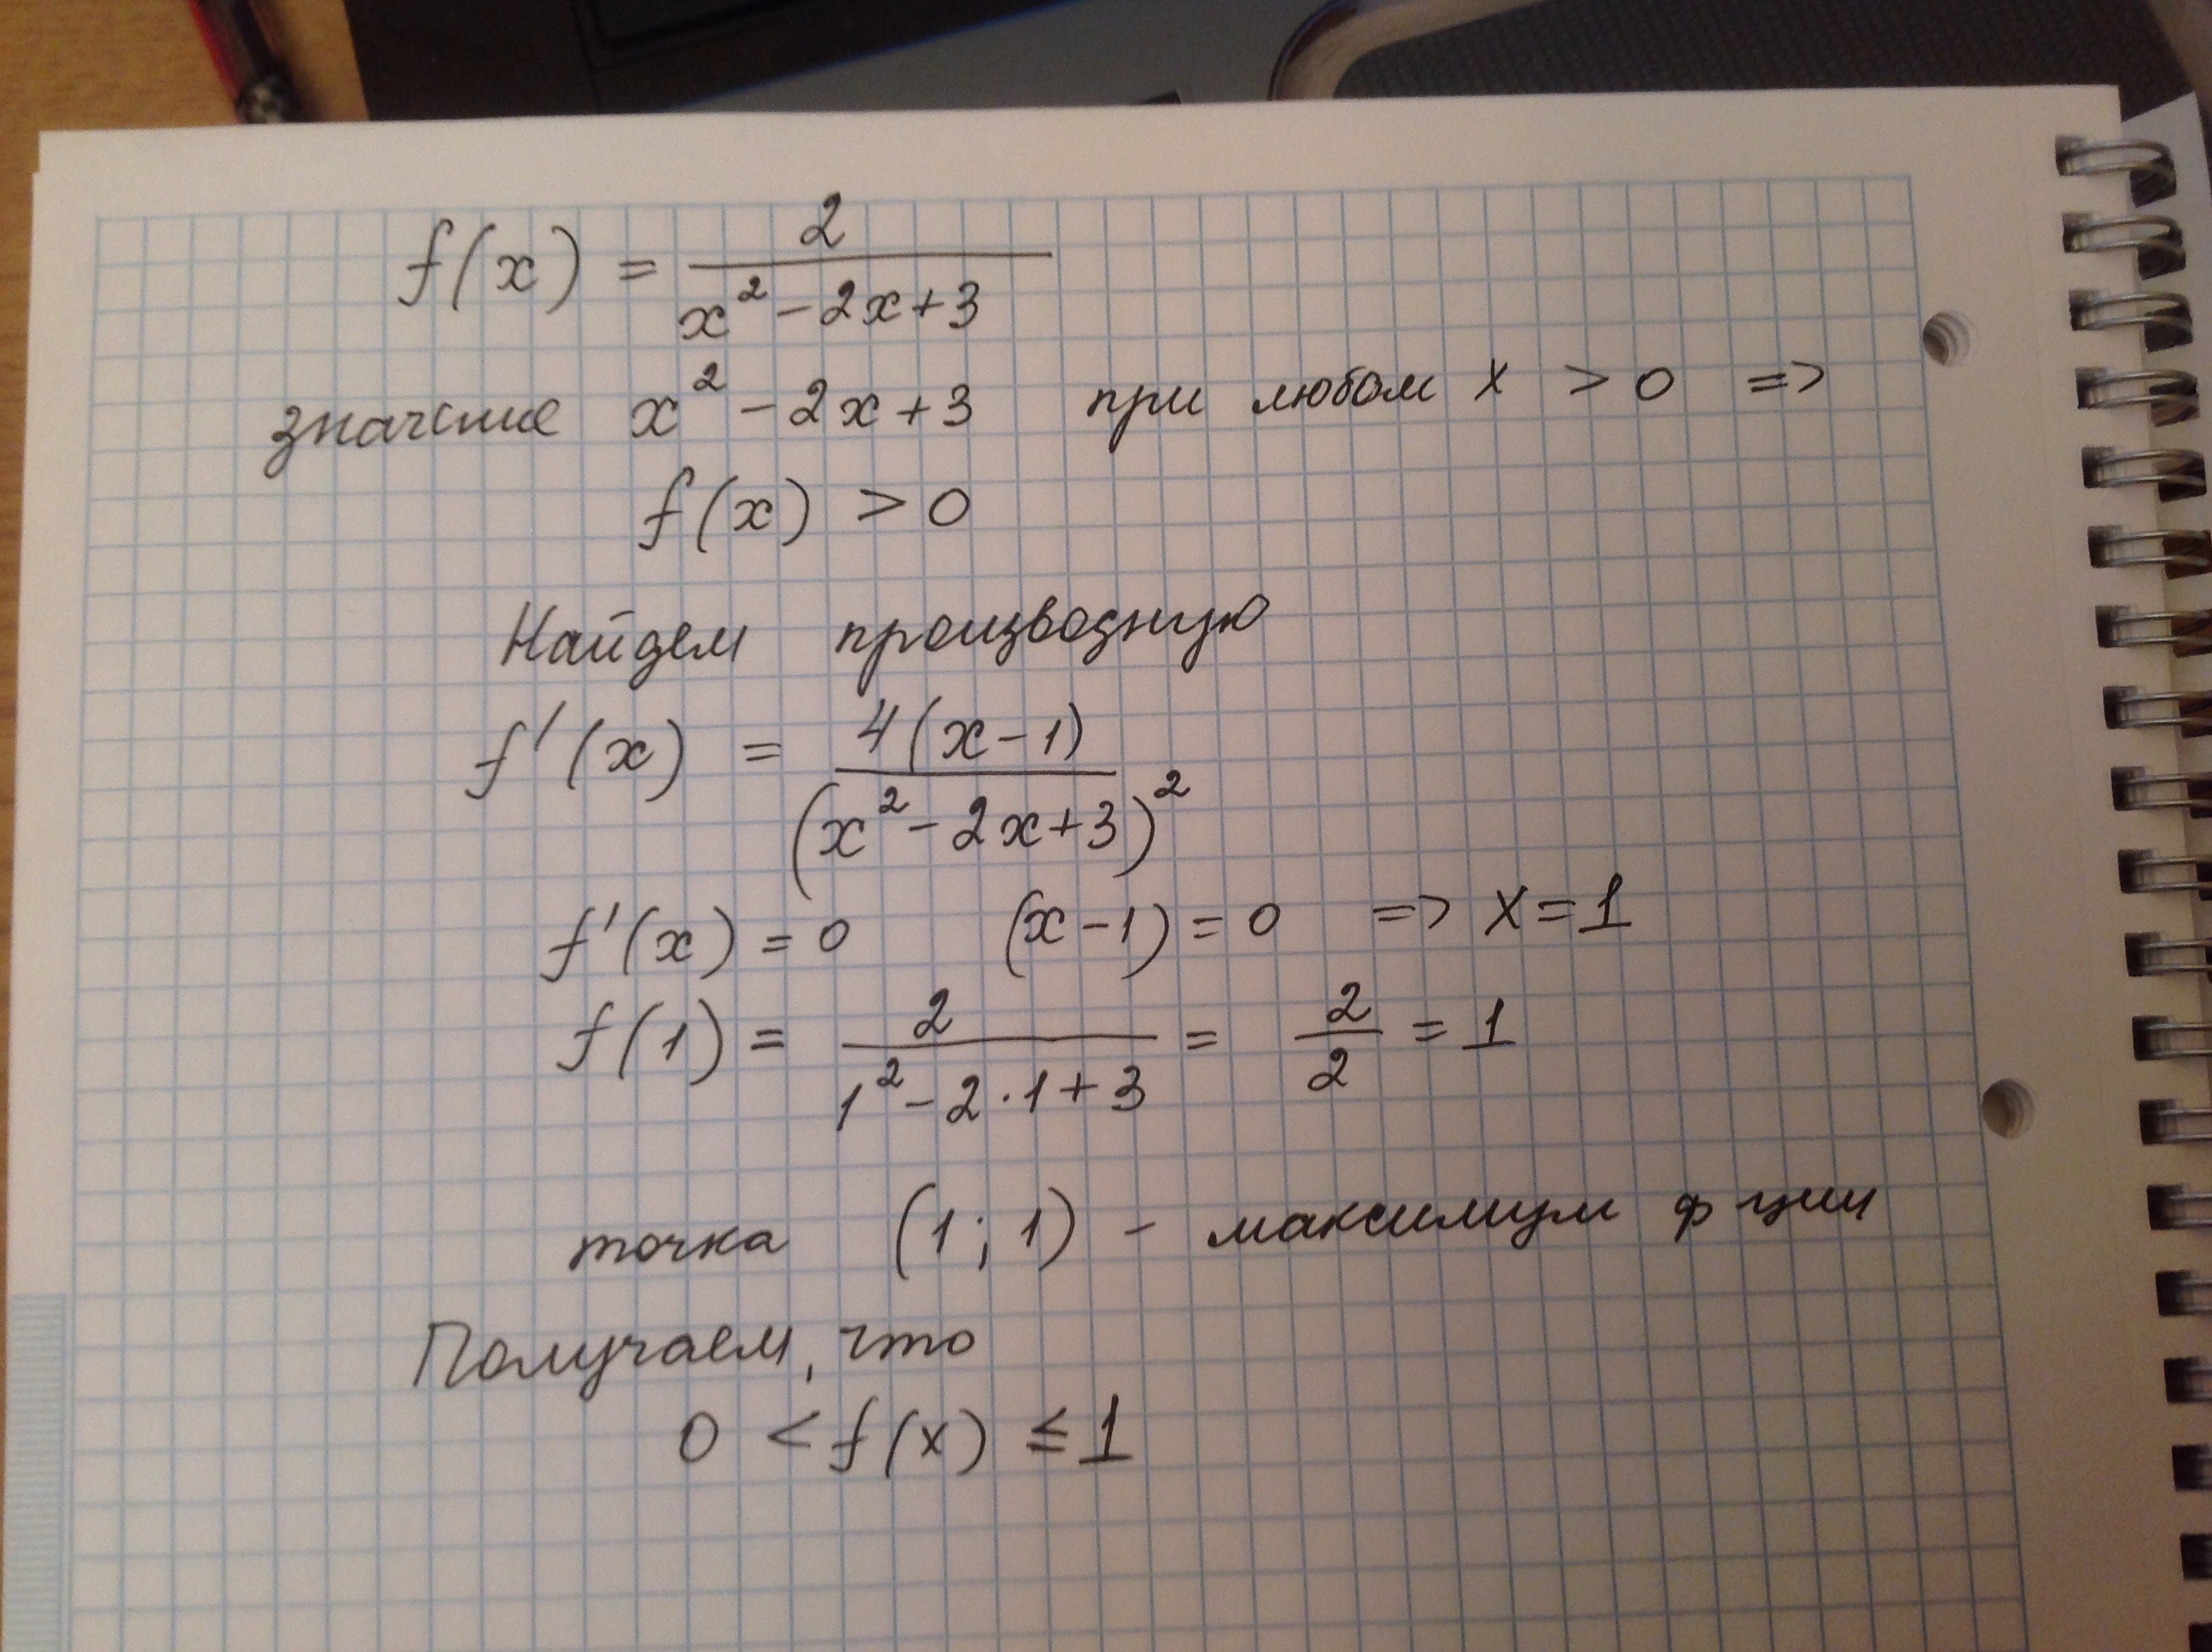 f(x) = 2 / (x² - 2x + 3)
значение x² - 2x + 3 при любом x > 0 =>
f(x) > 0
Найдем производную
f'(x) = 4(x-1) / (x² - 2x + 3)²
f'(x) = 0 (x-1) = 0 => x = 1
f(1) = 2 / (1² - 2·1 + 3) = 2/2 = 1
точка (1; 1) - максимум ф ции
Получаем, что
0 < f(x) ≤ 1